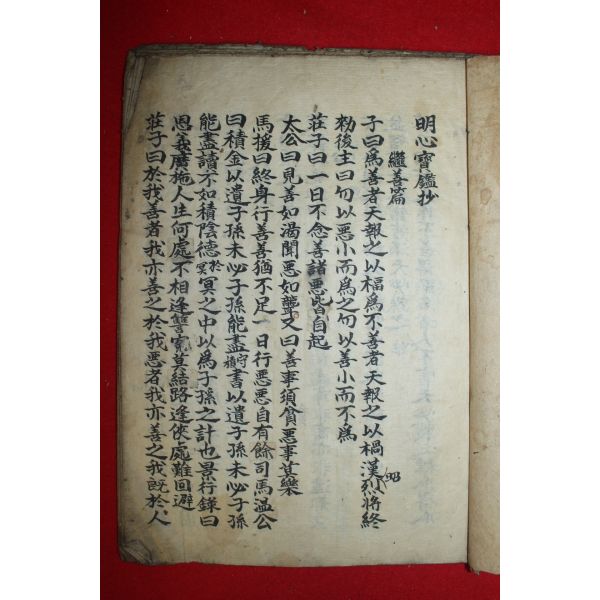 明心寶鑑抄
繼善篇
子曰爲善者天報之以福爲不善者天報之以禍漢烈將終
勑後主曰勿以惡小而爲之勿以善小而不爲
莊子曰一日不念善諸惡皆自起
太公曰見善如渴聞惡如聾又曰善事須貪惡事莫樂
馬援曰終身行善善猶不足一日行惡惡自有餘司馬溫公
曰積金以遺子孫未必子孫能盡守積書以遺子孫未必子孫
能盡讀不如積陰德於冥冥之中以爲子孫之計也景行錄曰
恩義廣施人生何處不相逢讐寃莫結路逢俠處難回避
莊子曰於我善者我亦善之於我惡者我亦善之我旣於人